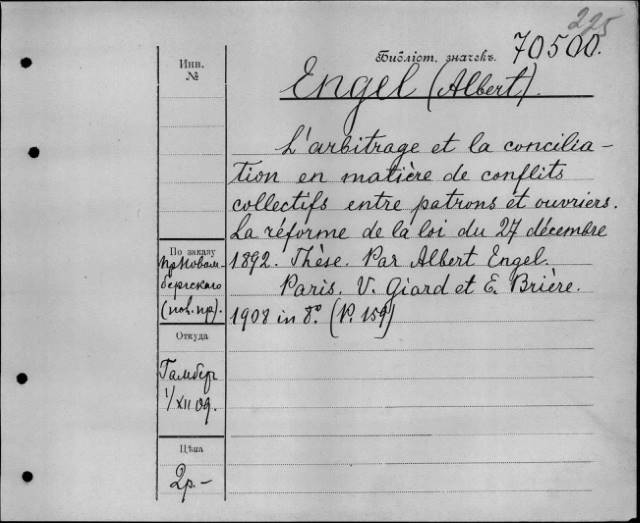 225
Библіот. значекъ. 70500.
Инв.
№
Engel (Albert).
L'arbitrage et la concilia-
tion en matière de conflits
collectifs entre patrons et ouvriers.
La réforme de la loi du 27 décembre
1892. Thèse. Par Albert Engel.
Paris. V. Giard et E. Brière.
1908 in 8.° (P. 159)
По заказу
пр. Новом-
бергскаго
(пол. пр).
Откуда
Гамбер
1/XII 09.
Цѣна
2р.-